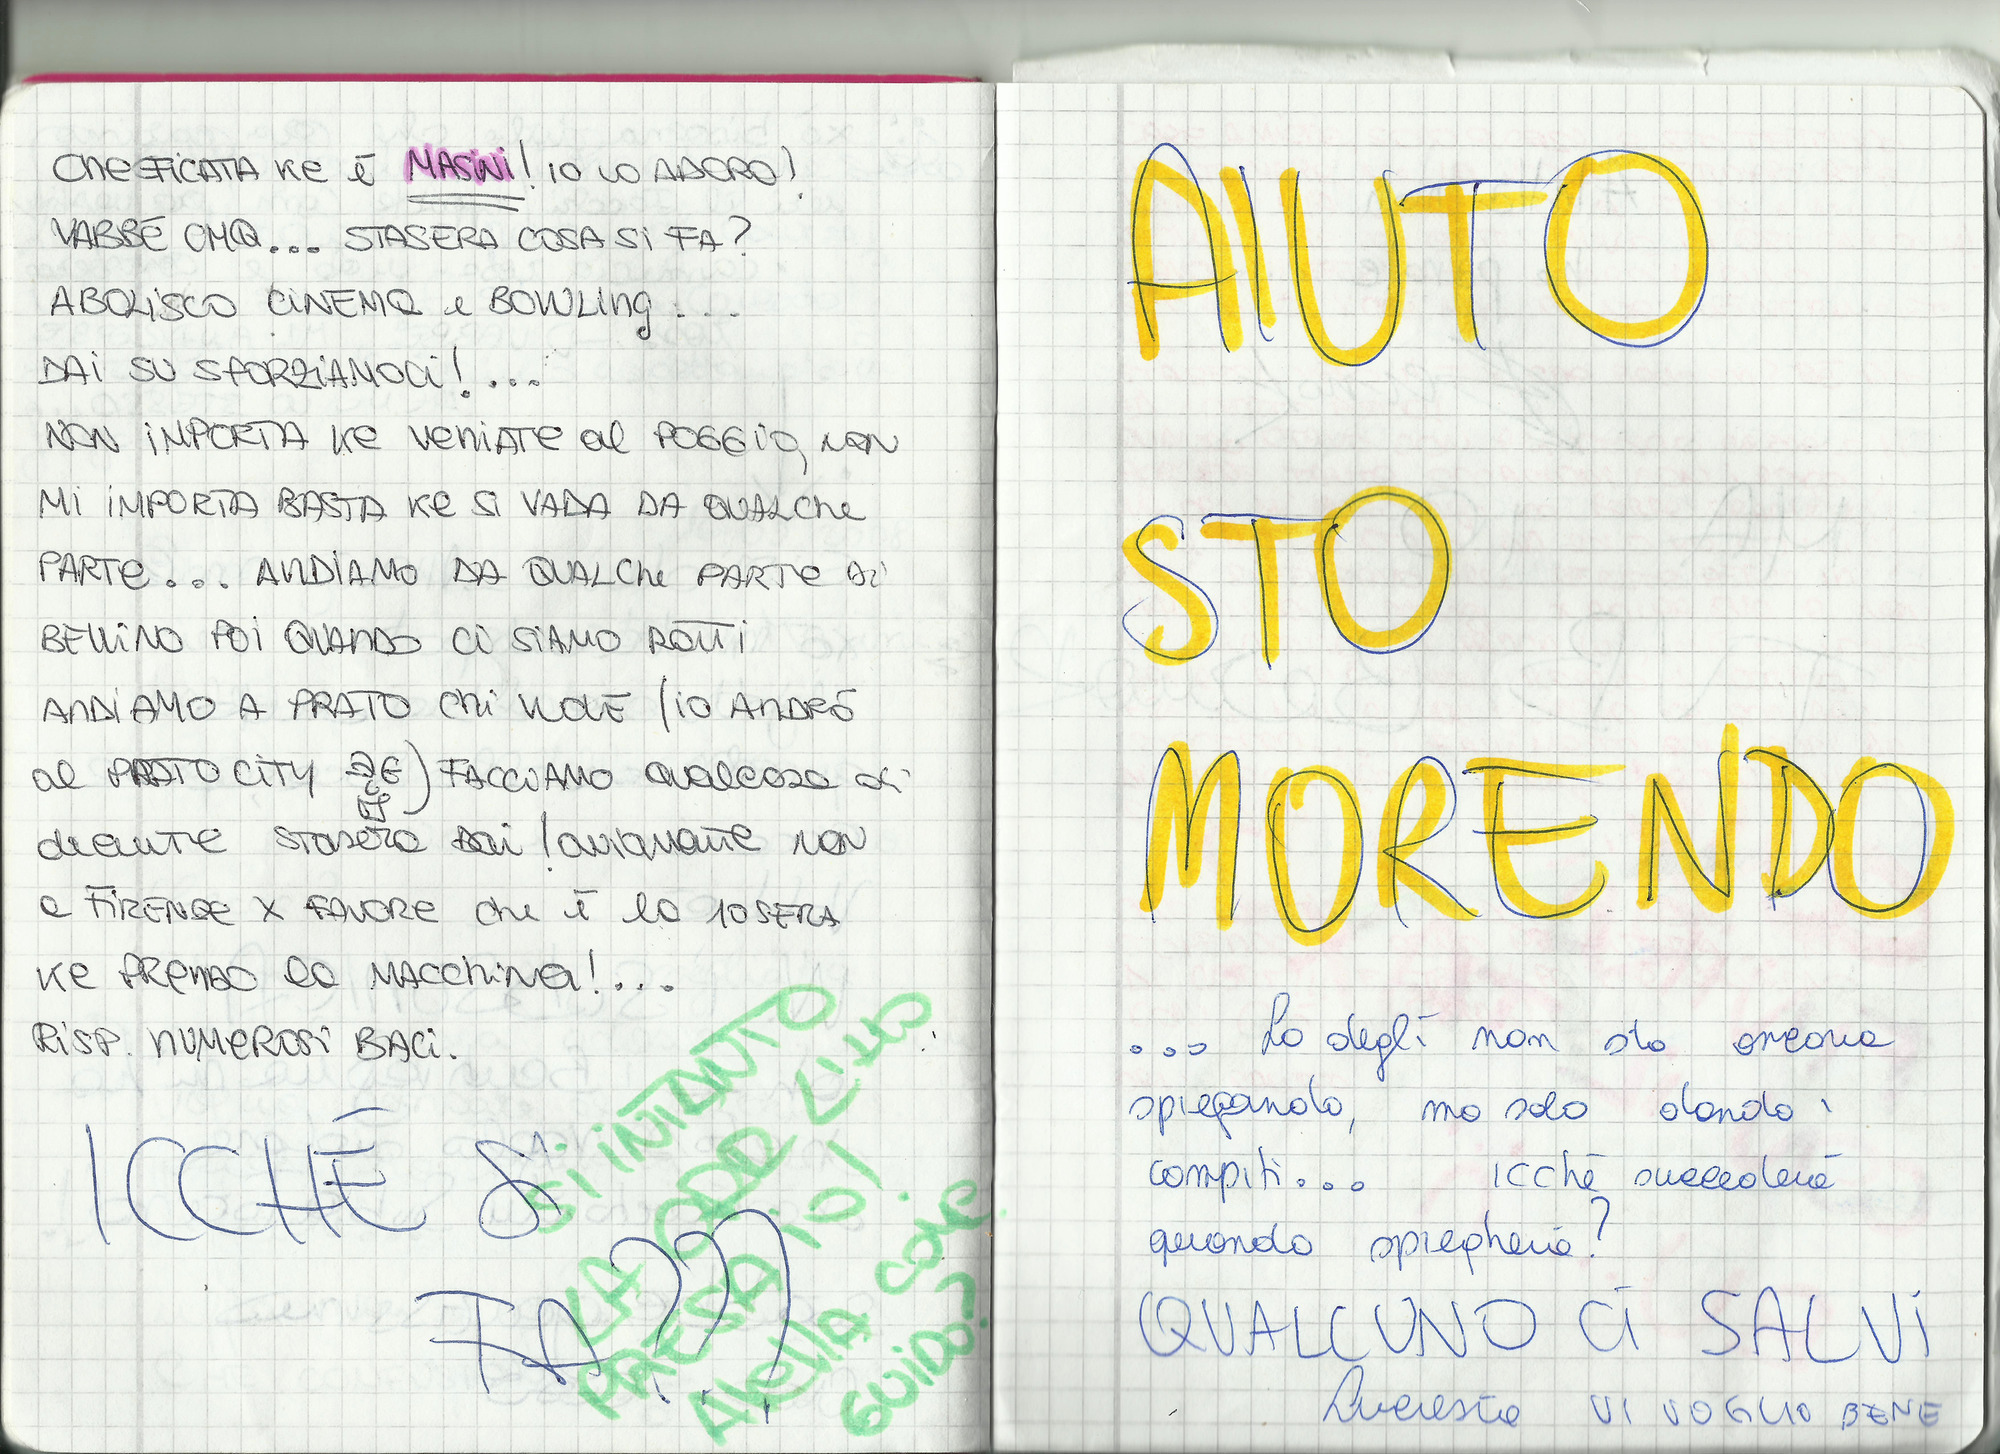 CHE FICATA KE È MASINI! IO LO ADORO!
VABBÈ CMQ... STASERA COSA SI FA?
ABOLISCO CINEMA e BOWLING...
DAI SU SFORZIAMOCI!...
NON IMPORTA KE VENIATE al POGGIO, NON
MI IMPORTA BASTA KE SI VADA DA QUALCHE
PARTE... ANDIAMO DA QUALCHE PARTE di
BELLINO POI QUANDO CI SIAMO ROTTI
ANDIAMO A PRATO CHI VUOLE (IO ANDRÒ
al PRATO CITY) FACCIAMO qualcosa di
decente stasera dai!
a FIRENZE X FAVORE che è la 10 SERA
KE PRENDO la MACCHINA!...
RISP. NUMEROSI BACI.
ICCHÈ SI
FA???
SI INTANTO
LA ODD LILLO
PRESA IO!
Alella come
GUIDO?
AIUTO
STO
MORENDO
... La degli non sta ancora
spiegando, ma solo dando i
compiti... Icché succederà
quando spiegherà?
QUALCUNO CI SALVI
Lucrezia VI VOGLIO BENE